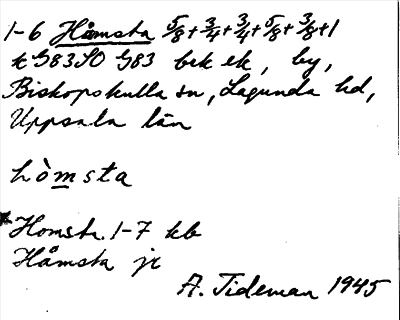 1-6 Håmsta 5/8+3/4+3/4+5/8+3/8+1
k G83SO G83 bek ek, by,
Biskopskulla sn, Lagunda hd,
Uppsala län
hòmsta
Homsta 1-7 kb
Håmsta jr
A. Tideman 1945